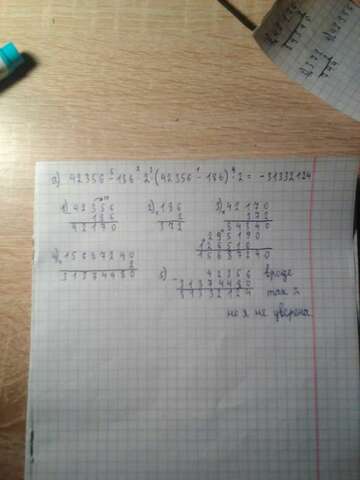 а) 42356 - 186 · 2 · (42356 - 186) · 2 = -31332124
1) 42356
186
42170
2) 186
2
372
3) 42170
372
84340
295190
126510
15687240
4) 15687240
2
31374480
5) 42356 вроде
31374480 так
31332124
но я не уверена